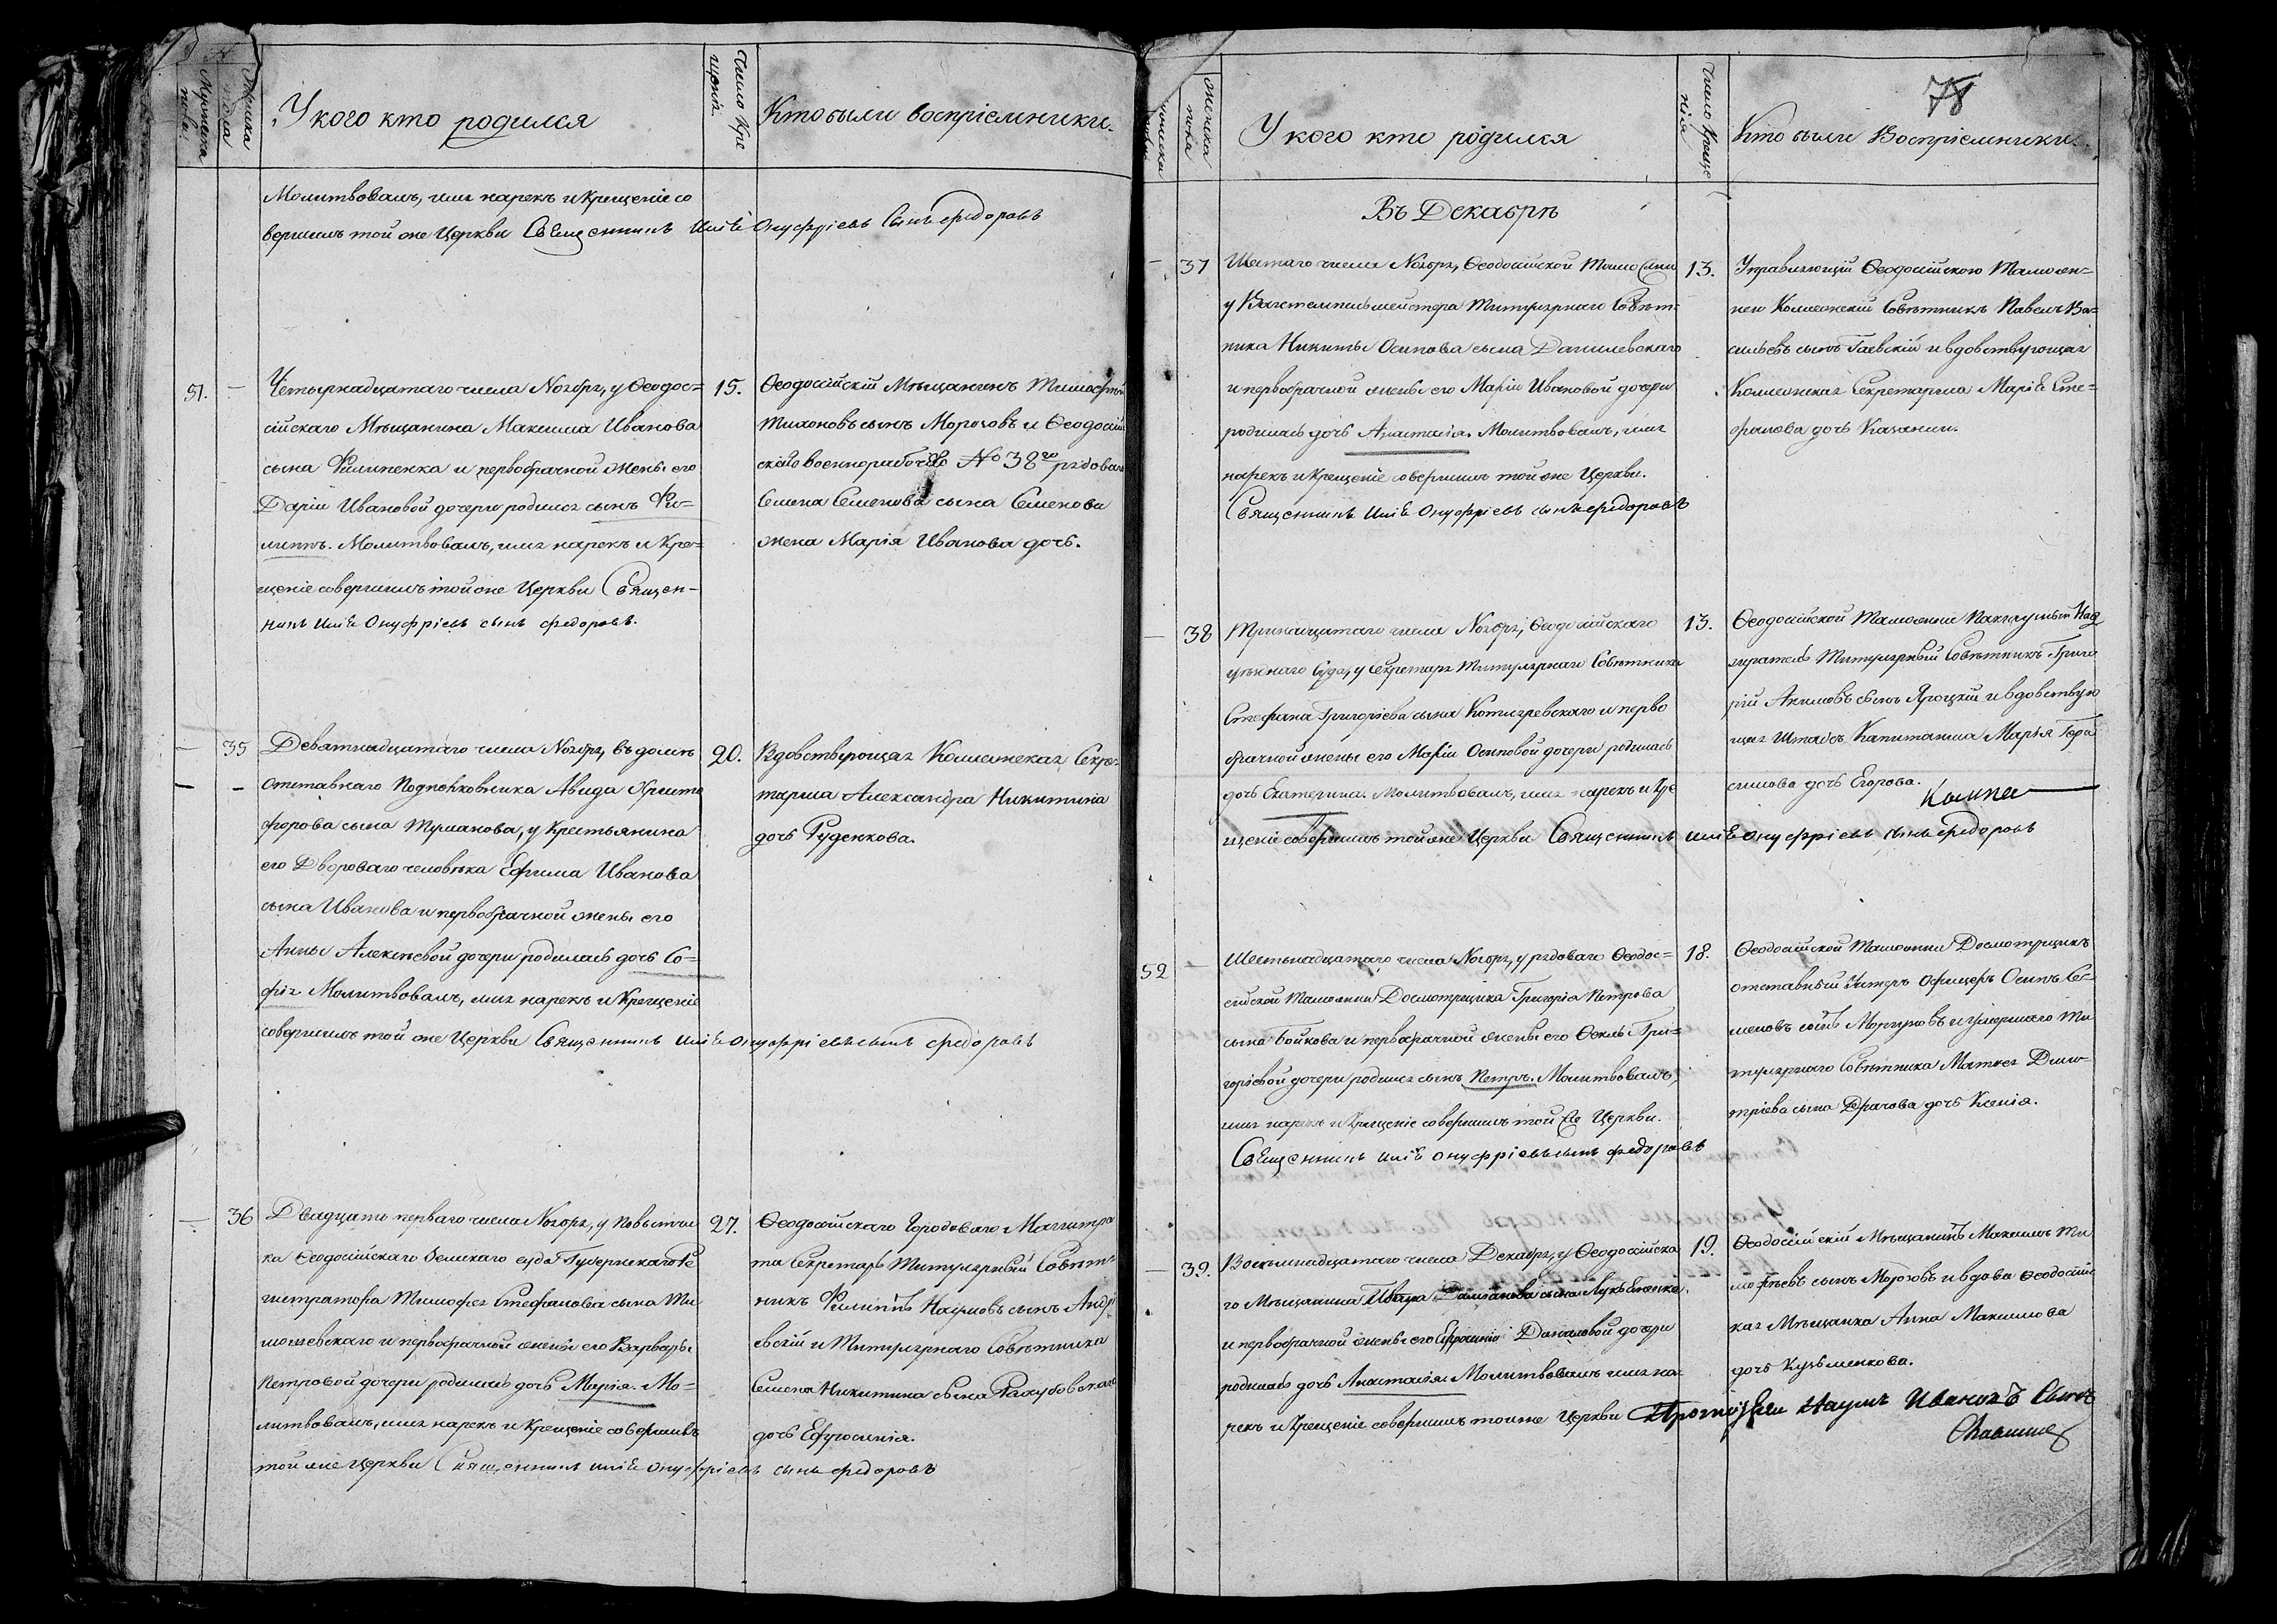 №
Мужеска пола.
Женска пола
У кого кто родился
Число Кре
щенія.
Кто были воспріемники.
Молитвовалъ, имя нарекъ и Крещеніе со
вершилъ той же Церкви Священникъ Илія Онуфріевъ Сынъ Федоровъ
51.
Четырнадцатаго числа Ноября, у Ѳеодос=
сійскаго Мѣщанина Максима Иванова
сына Филипенка и первобрачной жены его
Даріи Ивановой дочери родился сынъ Фи=
липпъ. Молитвовалъ, имя нарекъ и Кре=
щеніе совершилъ той же Церкви Священ-
никъ Илія Онуфріевъ сынъ Федоровъ.
15.
Ѳеодосійскій Мѣщанинъ Тимофей
Тихоновъ сынъ Морозовъ и Ѳеодосій
ской военнорабочей № 38го рядоваго
Семена Семенова сына Семенова
жена Марія Иванова дочь.
35
Девятнадцатаго числа Ноября, въ домѣ
отставнаго Подполковника Авида Христо
форова сына Туманова, у Крестьянина
его Двороваго человѣка Ефима Иванова
сына Иванова и первобрачной жены его
Анны Алексѣевой дочери родилась дочь Со=
фія. Молитвовалъ, имя нарекъ и Крещеніе
совершилъ той же Церкви Священникъ Илія Онуфріевъ сынъ Федоровъ
20.
Вдовствующая Коллежская Секре=
тарша Александра Никитина
дочь Руденкова.
36
Двадцать перваго числа Ноября, у Повытчи
ка Ѳеодосійскаго Земскаго суда Губернскаго Ре
гистратора Тимофея Стефанова сына Ти
мошевскаго и первобрачной жены его Варвары
Петровой дочери родилась дочь Марія. Мо=
литвовалъ, имя нарекъ и Крещеніе совершилъ
той же Церкви Священникъ Илія Онуфріевъ сынъ Федоровъ
27.
Ѳеодосійскаго Городоваго Магистра
та Секретарь Титулярный Совѣт=
никъ Филиппъ Наумовъ сынъ
и Титулярнаго Совѣтника
Семена Никитина сына
дочь Ефросинія.
78
Женска пола
У кого кто родился
Число Креще
нія
Кто были Воспріемники.
Въ Декабрѣ
37
Шестаго числа Ноября, Ѳеодосійской Таможни
у Вагстемпельмейстера Титулярнаго Совѣт=
ника Никиты Осипова сына Данилевскаго
и первобрачной жены его Маріи Ивановой дочери
родилась дочь Анастасія. Молитвовалъ, имя
нарекъ и Крещеніе совершилъ той же Церкви.
Священникъ Илія Онуфріевъ сынъ Федоровъ
13.
Управляющій Ѳеодосійскою Таможен=
нею Коллежскій Совѣтникъ Павелъ Ва=
сильевъ сынъ Гаевскій и вдовствующая
Коллежская Секретарша Марія Сте=
фанова дочь Казанли.
38
Тринадцатаго числа Ноября, Ѳеодосійскаго
уѣзднаго Суда, у Секретаря Титулярнаго Совѣтника
Стефана Григоріева сына Котляревскаго и перво
брачной жены его Маріи Осиповой дочери родилась
дочь Екатерина. Молитвовалъ, имя нарекъ и Кре
щеніе совершилъ той же Церкви Священникъ Илія Онуфріевъ сынъ Федоровъ
13.
Ѳеодосійской Таможни Пакгаузный Над
зиратель Титулярный Совѣтникъ Григо
рій Акимовъ сынъ Яроцкій и вдовствую
щая Штабсъ Капитанша Марія Гера
симова дочь Егорова.
52
Шестьнадцатаго числа Ноября, у рядоваго Ѳеодос=
сійской Таможни Досмотрщика Григорія Петрова
сына Бойкова и первобрачной жены его Ѳеклы Гри=
горіевой дочери родился сынъ Петръ. Молитвовалъ,
имя нарекъ и Крещеніе совершилъ той же Церкви.
Священникъ Илія Онуфріевъ сынъ Федоровъ
18.
Ѳеодосійской Таможни Досмотрщикъ
отставный Унтеръ Офицеръ Осипъ Се=
меновъ сынъ Моргуновъ и умершаго Ти
тулярнаго Совѣтника Матвея Дими=
тріева сына Драчова дочь Ксенія.
39.
Восемьнадцатаго числа Декабря, у Ѳеодосійска
го Мѣщанина сына
и первобрачной жены его Даниловой дочери
родилась дочь Анастасія. Молитвовалъ имя на
рекъ и Крещеніе совершилъ той же Церкви Протоіерей Наумъ Ивановъ Сынъ
19.
Ѳеодосійскій Мѣщанинъ Максимъ Ти
мофѣевъ сынъ Морозовъ и вдова Ѳеодосійс
кая Мѣщанка Анна Максимова
дочь Кузьменкова.